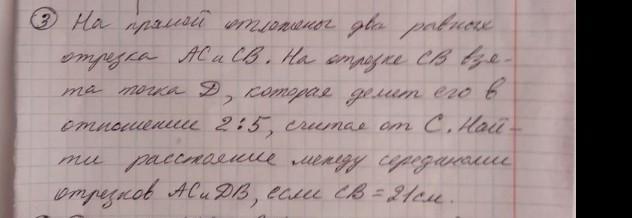 ③ На прямой отложены два равных
отрезка AC и CB. На отрезке CB взя-
та точка D, которая делит его в
отношении 2:5, считая от C. Най-
ти расстояние между серединами
отрезков AC и DB, если CB = 21 см.